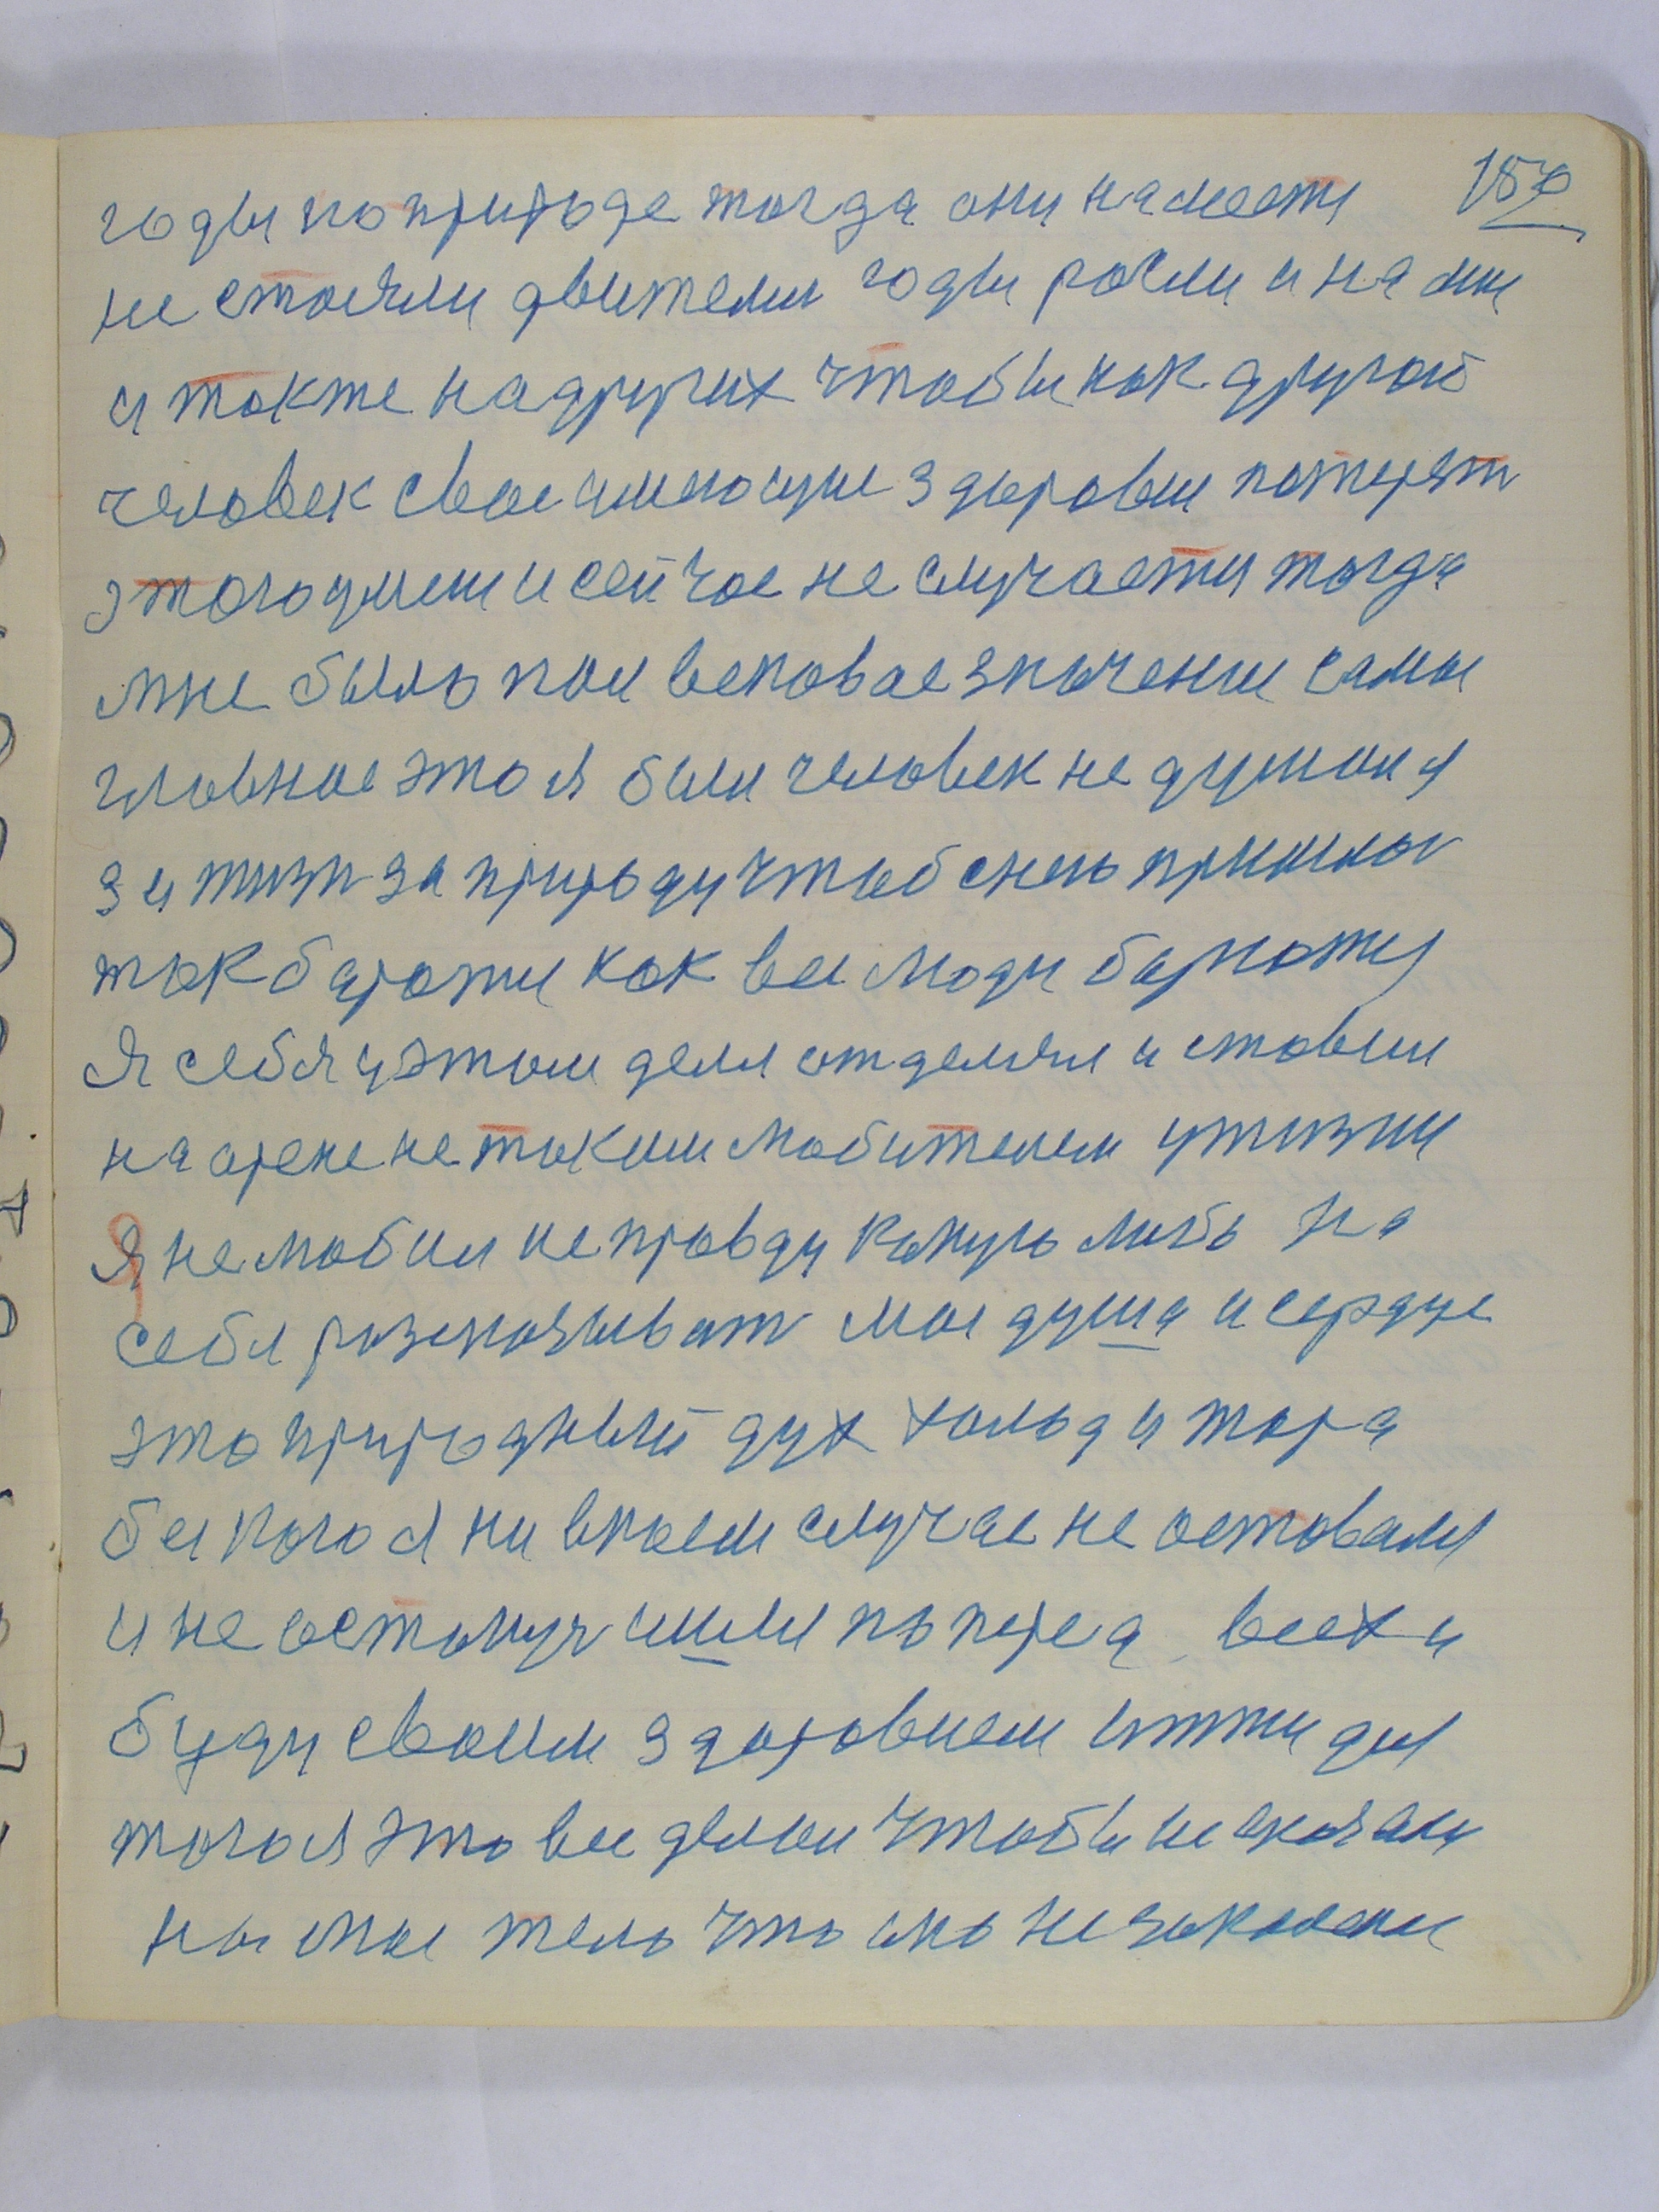 157
годы по природе тогда они на мести
не стояли двителы годы росли и на мне
и также на других чтобы как другой
человек свое имеющие здоровы потерят
этого у мене и сейчас не случаеты тогда
мне было веповае значение самы
главное это я был человек не думал я
за жизн за природу чтоб с нею пришлос
так бароты как все люди бароты
Я себя у этом деля отделял и ставил
на арене не таким любителем у жизни
Я не любил не правду какую либо на
себя розсказыват мое душа и сердце
это природный дух холод и тора
без кого я ни в коем случае не оставалы
и не останус имел поперед всех и
буду своим здоровием итти для
того я это все делаю чтобы не сказали
на мое тело что оно не законое